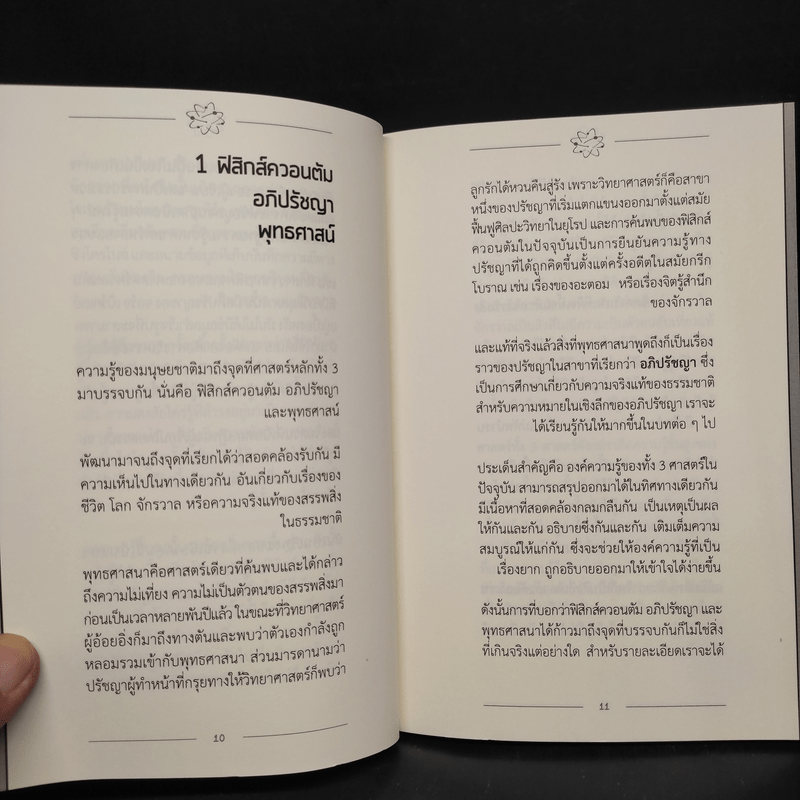 1 ฟิสิกส์ควอนตัม
อภิปรัชญา
พุทธศาสน์
ความรู้ของมนุษยชาติมาถึงจุดที่ศาสตร์หลักทั้ง 3
มาบรรจบกัน นั่นคือ ฟิสิกส์ควอนตัม อภิปรัชญา
และพุทธศาสน์
พัฒนามาจนถึงจุดที่เรียกได้ว่าสอดคล้องรับกัน มี
ความเห็นไปในทางเดียวกัน อันเกี่ยวกับเรื่องของ
ชีวิต โลก จักรวาล หรือความจริงแท้ของสรรพสิ่ง
ในธรรมชาติ
พุทธศาสนาคือศาสตร์เดียวที่ค้นพบและได้กล่าว
ถึงความไม่เที่ยง ความไม่เป็นตัวตนของสรรพสิ่งมา
ก่อนเป็นเวลาหลายพันปีแล้ว ในขณะที่วิทยาศาสตร์
ผู้อ้อยอิ่งก็มาถึงทางตันและพบว่าตัวเองกำลังถูก
หลอมรวมเข้ากับพุทธศาสนา ส่วนมารดานามว่า
ปรัชญาผู้ทำหน้าที่กรุยทางให้วิทยาศาสตร์ก็พบว่า
10
ลูกรักได้หวนคืนสู่รัง เพราะวิทยาศาสตร์ก็คือสาขา
หนึ่งของปรัชญาที่เริ่มแตกแขนงออกมาตั้งแต่สมัย
ฟื้นฟูศิลปะวิทยาในยุโรป และการค้นพบของฟิสิกส์
ควอนตัมในปัจจุบันเป็นการยืนยันความรู้ทาง
ปรัชญาที่ได้ถูกคิดขึ้นตั้งแต่ครั้งอดีตในสมัยกรีก
โบราณ เช่น เรื่องของอะตอม หรือเรื่องจิตรู้สำนึก
ของจักรวาล
และแท้ที่จริงแล้วสิ่งที่พุทธศาสนาพูดถึงก็เป็นเรื่อง
ราวของปรัชญาในสาขาที่เรียกว่า อภิปรัชญา ซึ่ง
เป็นการศึกษาเกี่ยวกับความจริงแท้ของธรรมชาติ
สำหรับความหมายในเชิงลึกของอภิปรัชญา เราจะ
ได้เรียนรู้กันให้มากขึ้นในบทต่อ ๆ ไป
ประเด็นสำคัญคือ องค์ความรู้ของทั้ง 3 ศาสตร์ใน
ปัจจุบัน สามารถสรุปออกมาได้ในทิศทางเดียวกัน
มีเนื้อหาที่สอดคล้องกลมกลืนกัน เป็นเหตุเป็นผล
ให้กันและกัน อธิบายซึ่งกันและกัน เติมเต็มความ
สมบูรณ์ให้แก่กัน ซึ่งจะช่วยให้องค์ความรู้ที่เป็น
เรื่องยาก ถูกอธิบายออกมาให้เข้าใจได้ง่ายขึ้น
ดังนั้นการที่บอกว่าฟิสิกส์ควอนตัม อภิปรัชญา และ
พุทธศาสนาได้ก้าวมาถึงจุดที่บรรจบกันก็ไม่ใช่สิ่ง
ที่เกินจริงแต่อย่างใด สำหรับรายละเอียดเราจะได้
11